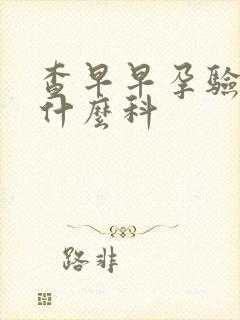 查早早孕驗
什麼科
路非